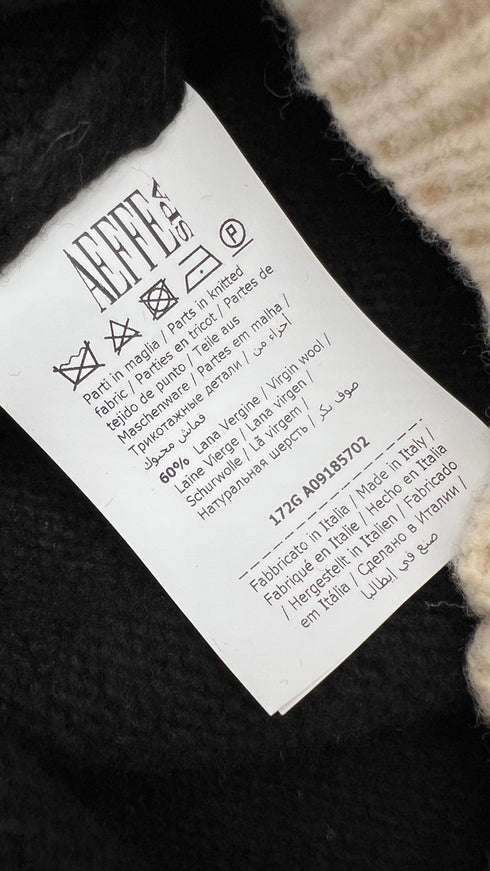 AEFFE SPA
P
Parti in maglia / Parts in knitted
fabric / Parties en tricot / Partes de
tejido de punto / Teile aus
Maschenware / Partes em malha /
Трикотажные детали / أجزاء من
قماش محبوك
60% Lana Vergine / Virgin wool /
Laine Vierge / Lana virgen /
Schurwolle / Lã virgem /
Натуральная шерсть / صوف بكر
172G A09185702
Fabbricato in Italia / Made in Italy /
Fabriqué en Italie / Hecho en Italia
/ Hergestellt in Italien / Fabricado
em Itália / Сделано в Италии /
صنع في ايطاليا